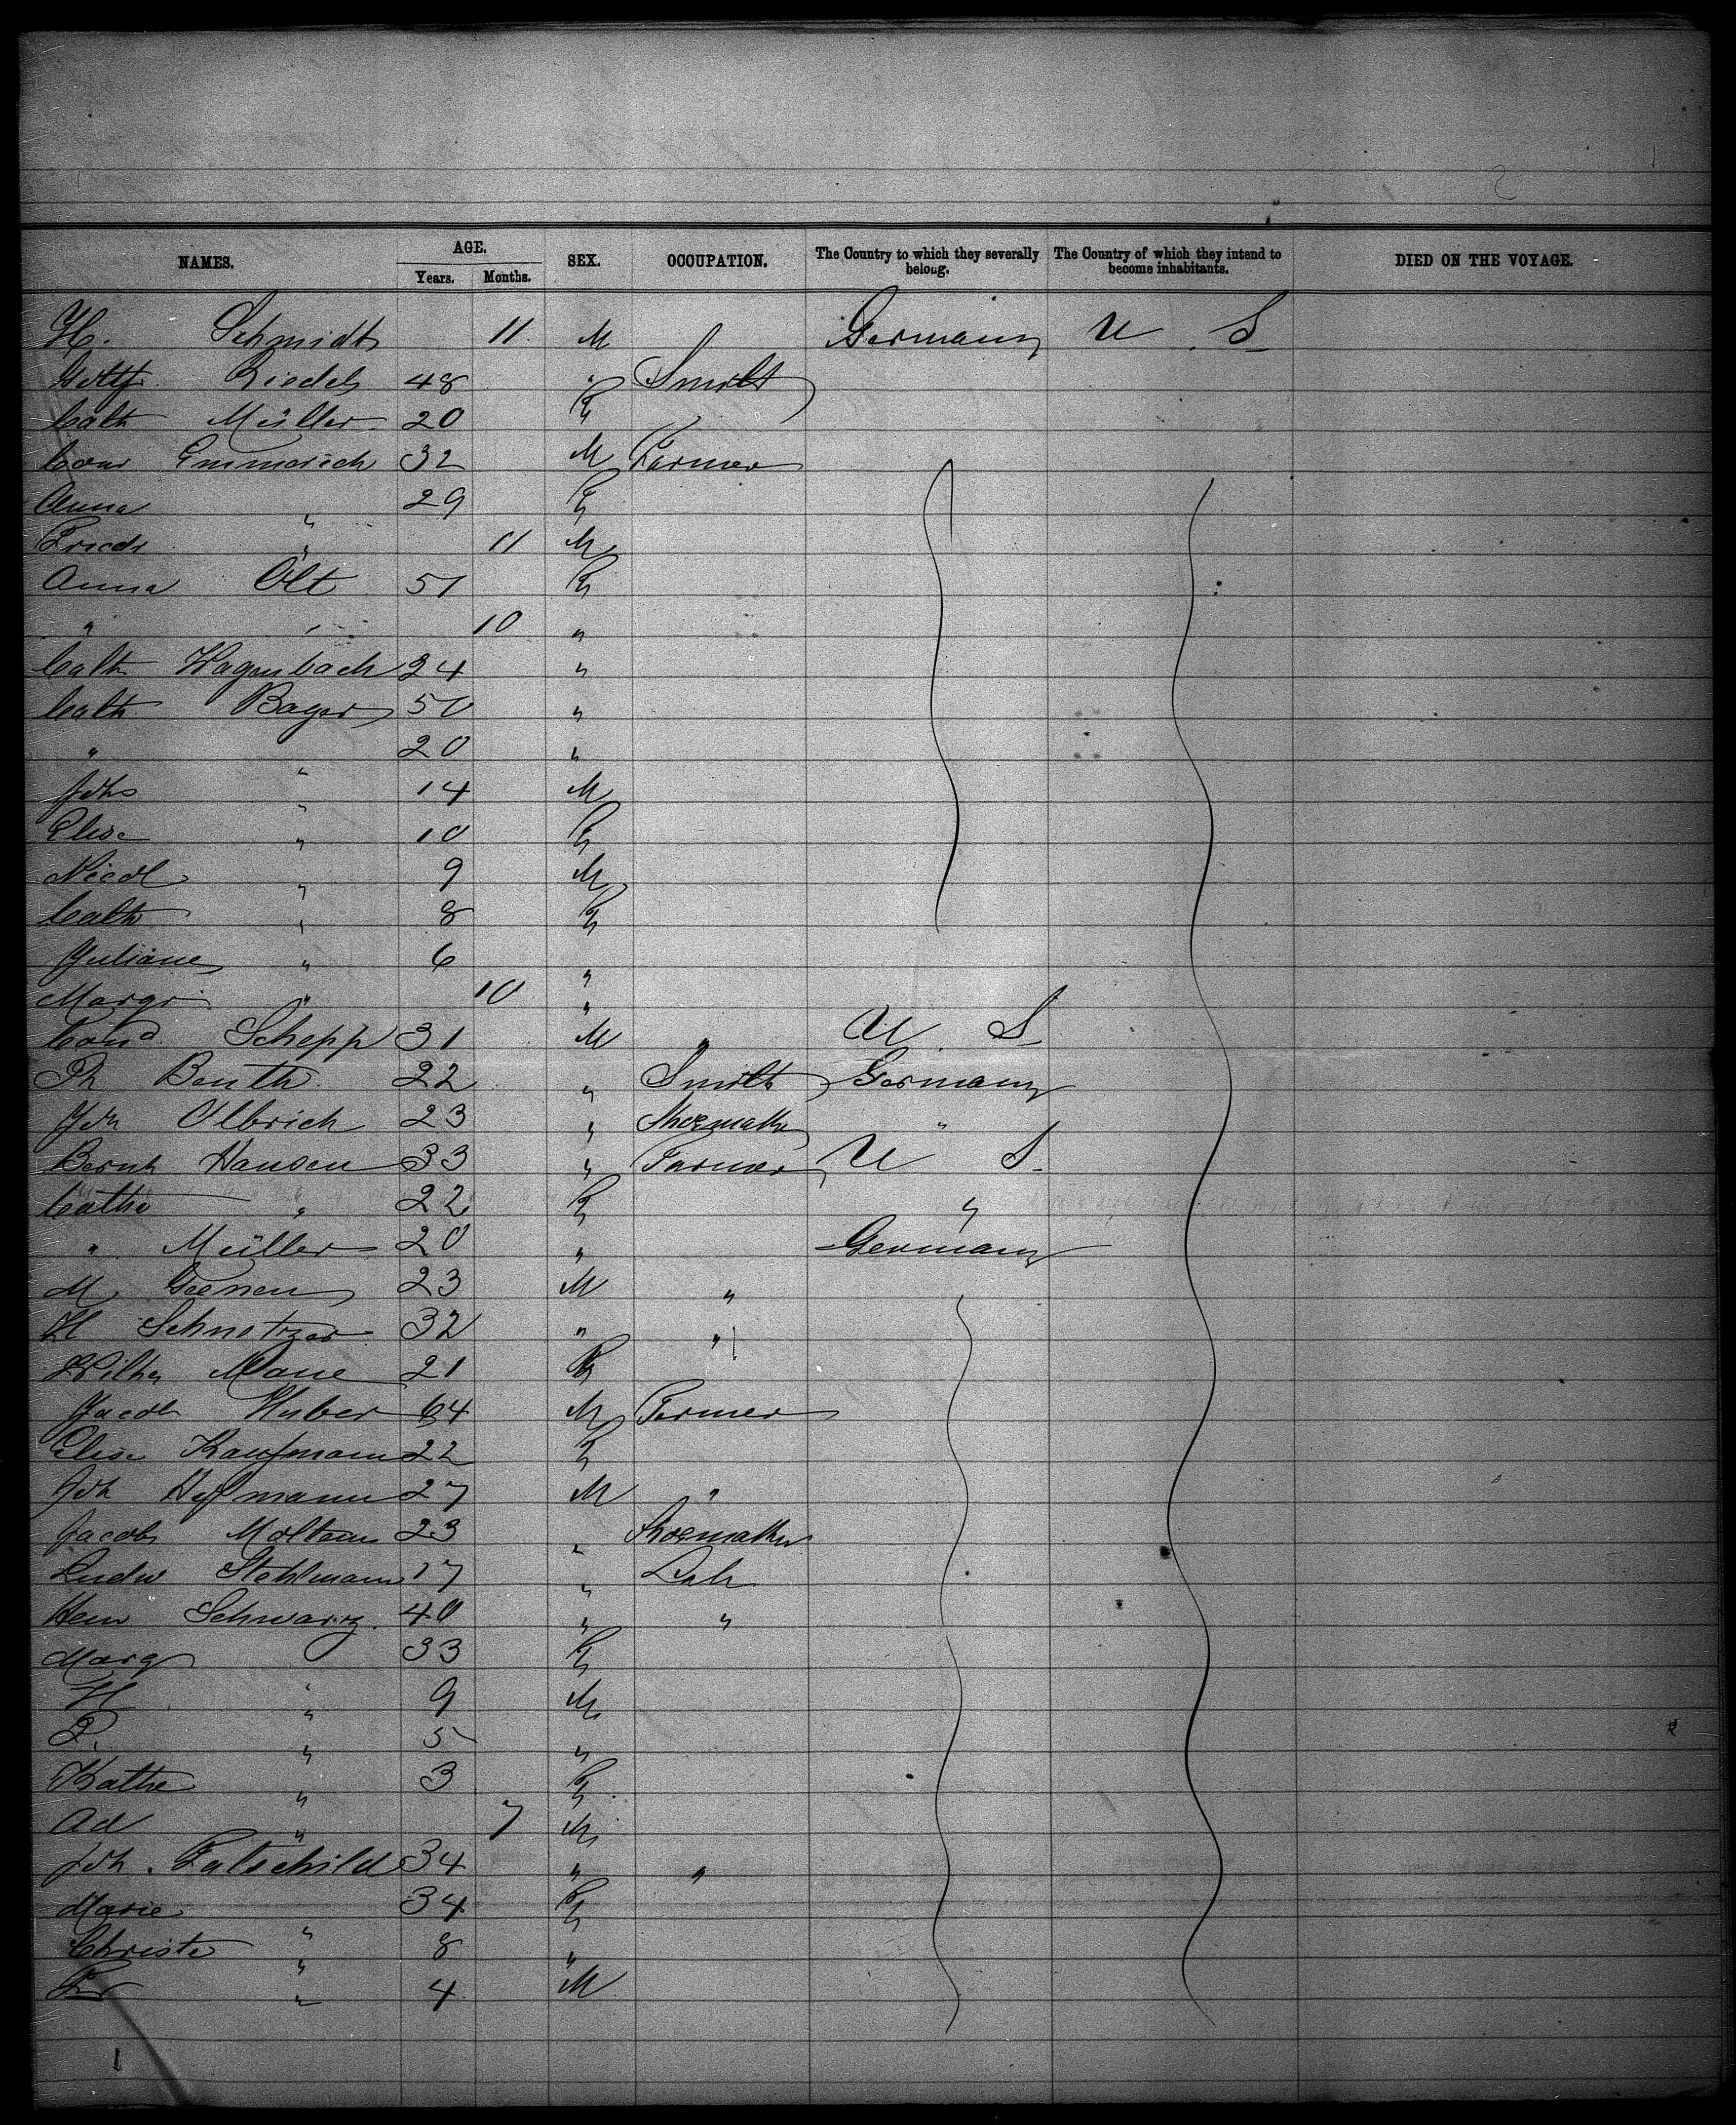 NAMES. AGE. Years. Months. SEX. OCCUPATION. The Country to which they severally belong. The Country of which they intend to become inhabitants. DIED ON THE VOYAGE.
H. Schmidt 11 M Germany U. S
Gottfr. Riedel 48 " Smith
Cath Müller 20 F
Conr Emmerich 32 M Farmer
Anna " 29 F
Friedr " 11 M
Anna Olt 51 F
" " 10 "
Cath Wagenbach 24 "
Cath Bayer 50 "
" " 20 "
Johs " 14 M
Elise " 10 F
Nicol " 9 M
Cath " 8 F
Juliane " 6 "
Margr " 10 "
Conrd Schepp 31 M " U. S
Ph Benth 22 " Smith Germany
Joh Olbrich 23 " Shoemaker "
Bernh Hansen 33 " Farmer U S
Cathe " 22 F "
" Müller 20 " Germany
M Geenen 23 M "
H Schnetzer 32 " "
Wilh Mane 21 F
Jacob Huber 64 M Farmer
Elise Kaufmann 22 F
Joh Hofmann 27 M "
Jacob 23 " Shoemaker
Ludw Stohlmann 17 " Lab
Hein Schwarz 40 " "
Marg " 33 F
H " 9 M
P. " 5 "
Kathe " 3 F
Ad " 7 M
Joh. 34 " "
Marie " 34 F
Christe " 8 "
Fr " 4 M
1